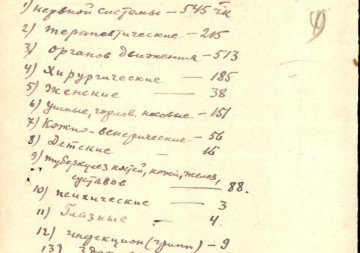 1) нервной системы – 545
2) терапевтические – 215
3) органов движения – 513
4) Хирургические — 185
5) Женские — 38
6) ушные, горлов. носовые – 151
7) Кожно-венерические – 56
8) Детские — 16
9) туберкулез костей, кожи, желез,
суставов — 88.
10) психические — 3
11) Глазные — 4.
12) инфекцион (грипп) – 9
13)